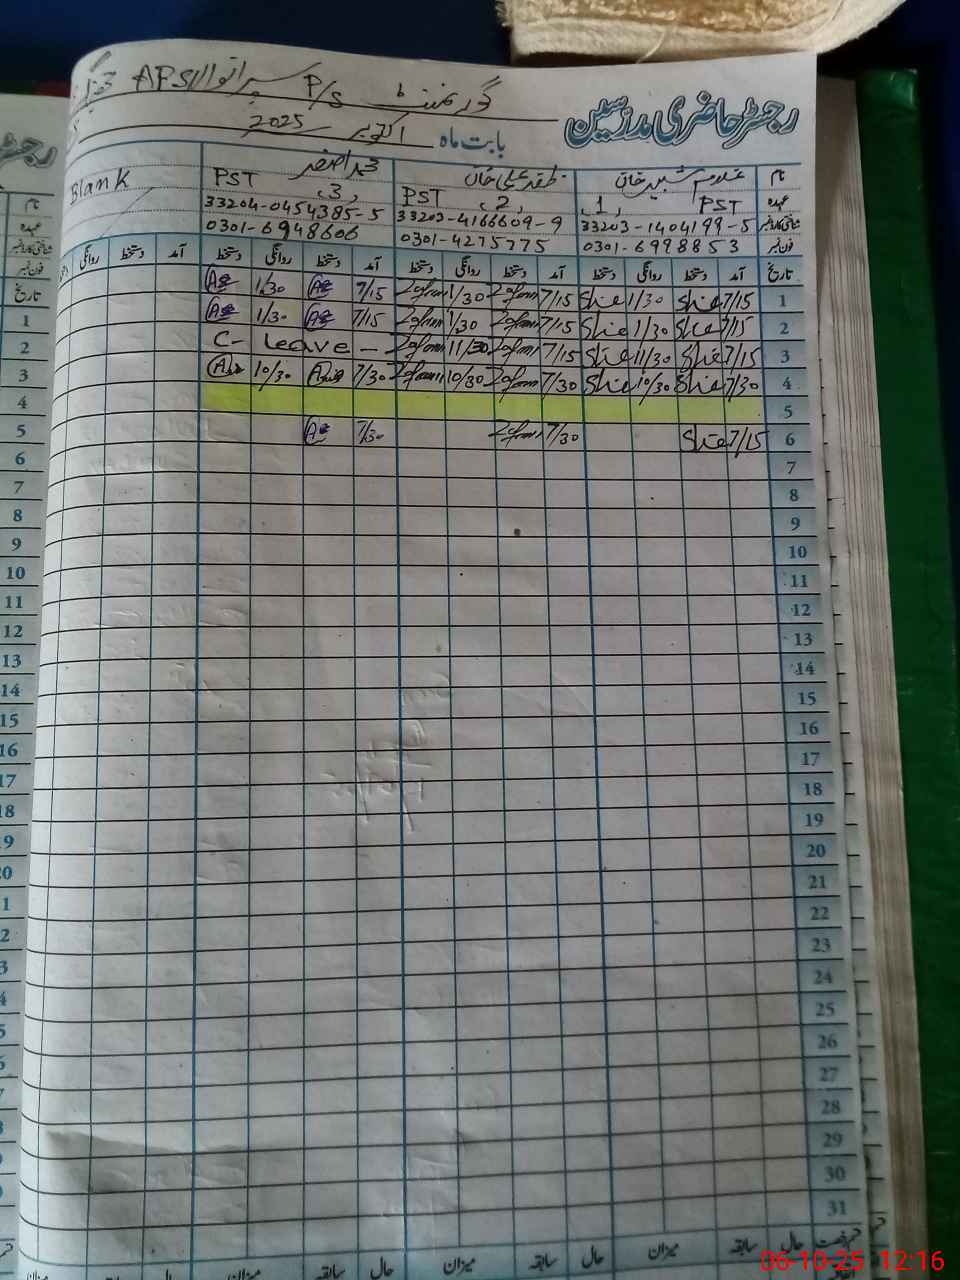 رجسٹر حاضری مدرسین
گورنمنٹ P/S APS
بابت ماہ اکتوبر 2025
نام غلام شبیر خان ظفر علی خان محمد اصغر Blank
عہدہ PST 1 PST 2 PST 3
شناختی کارڈ نمبر 33203-1404199-5 33203-4166609-9 33204-0454385-5
فون نمبر 0301-6998853 0301-4275775 0301-6948606
تاریخ آمد دستخط روانگی دستخط آمد دستخط روانگی دستخط آمد دستخط روانگی دستخط آمد دستخط روانگی
1 7/15 1/30 7/15 1/30 7/15 1/30
2 7/15 1/30 7/15 1/30 7/15 1/30
3 7/15 11/30 7/15 11/30 C- leave -
4 7/30 10/30 7/30 10/30 7/30 10/30
5
6 7/15 7/30 7/30
7
8
9
10
11
12
13
14
15
16
17
18
19
20
21
22
23
24
25
26
27
28
29
30
31
حال سابقہ میزان حال سابقہ میزان حال سابقہ میزان
06-10-25 12:16